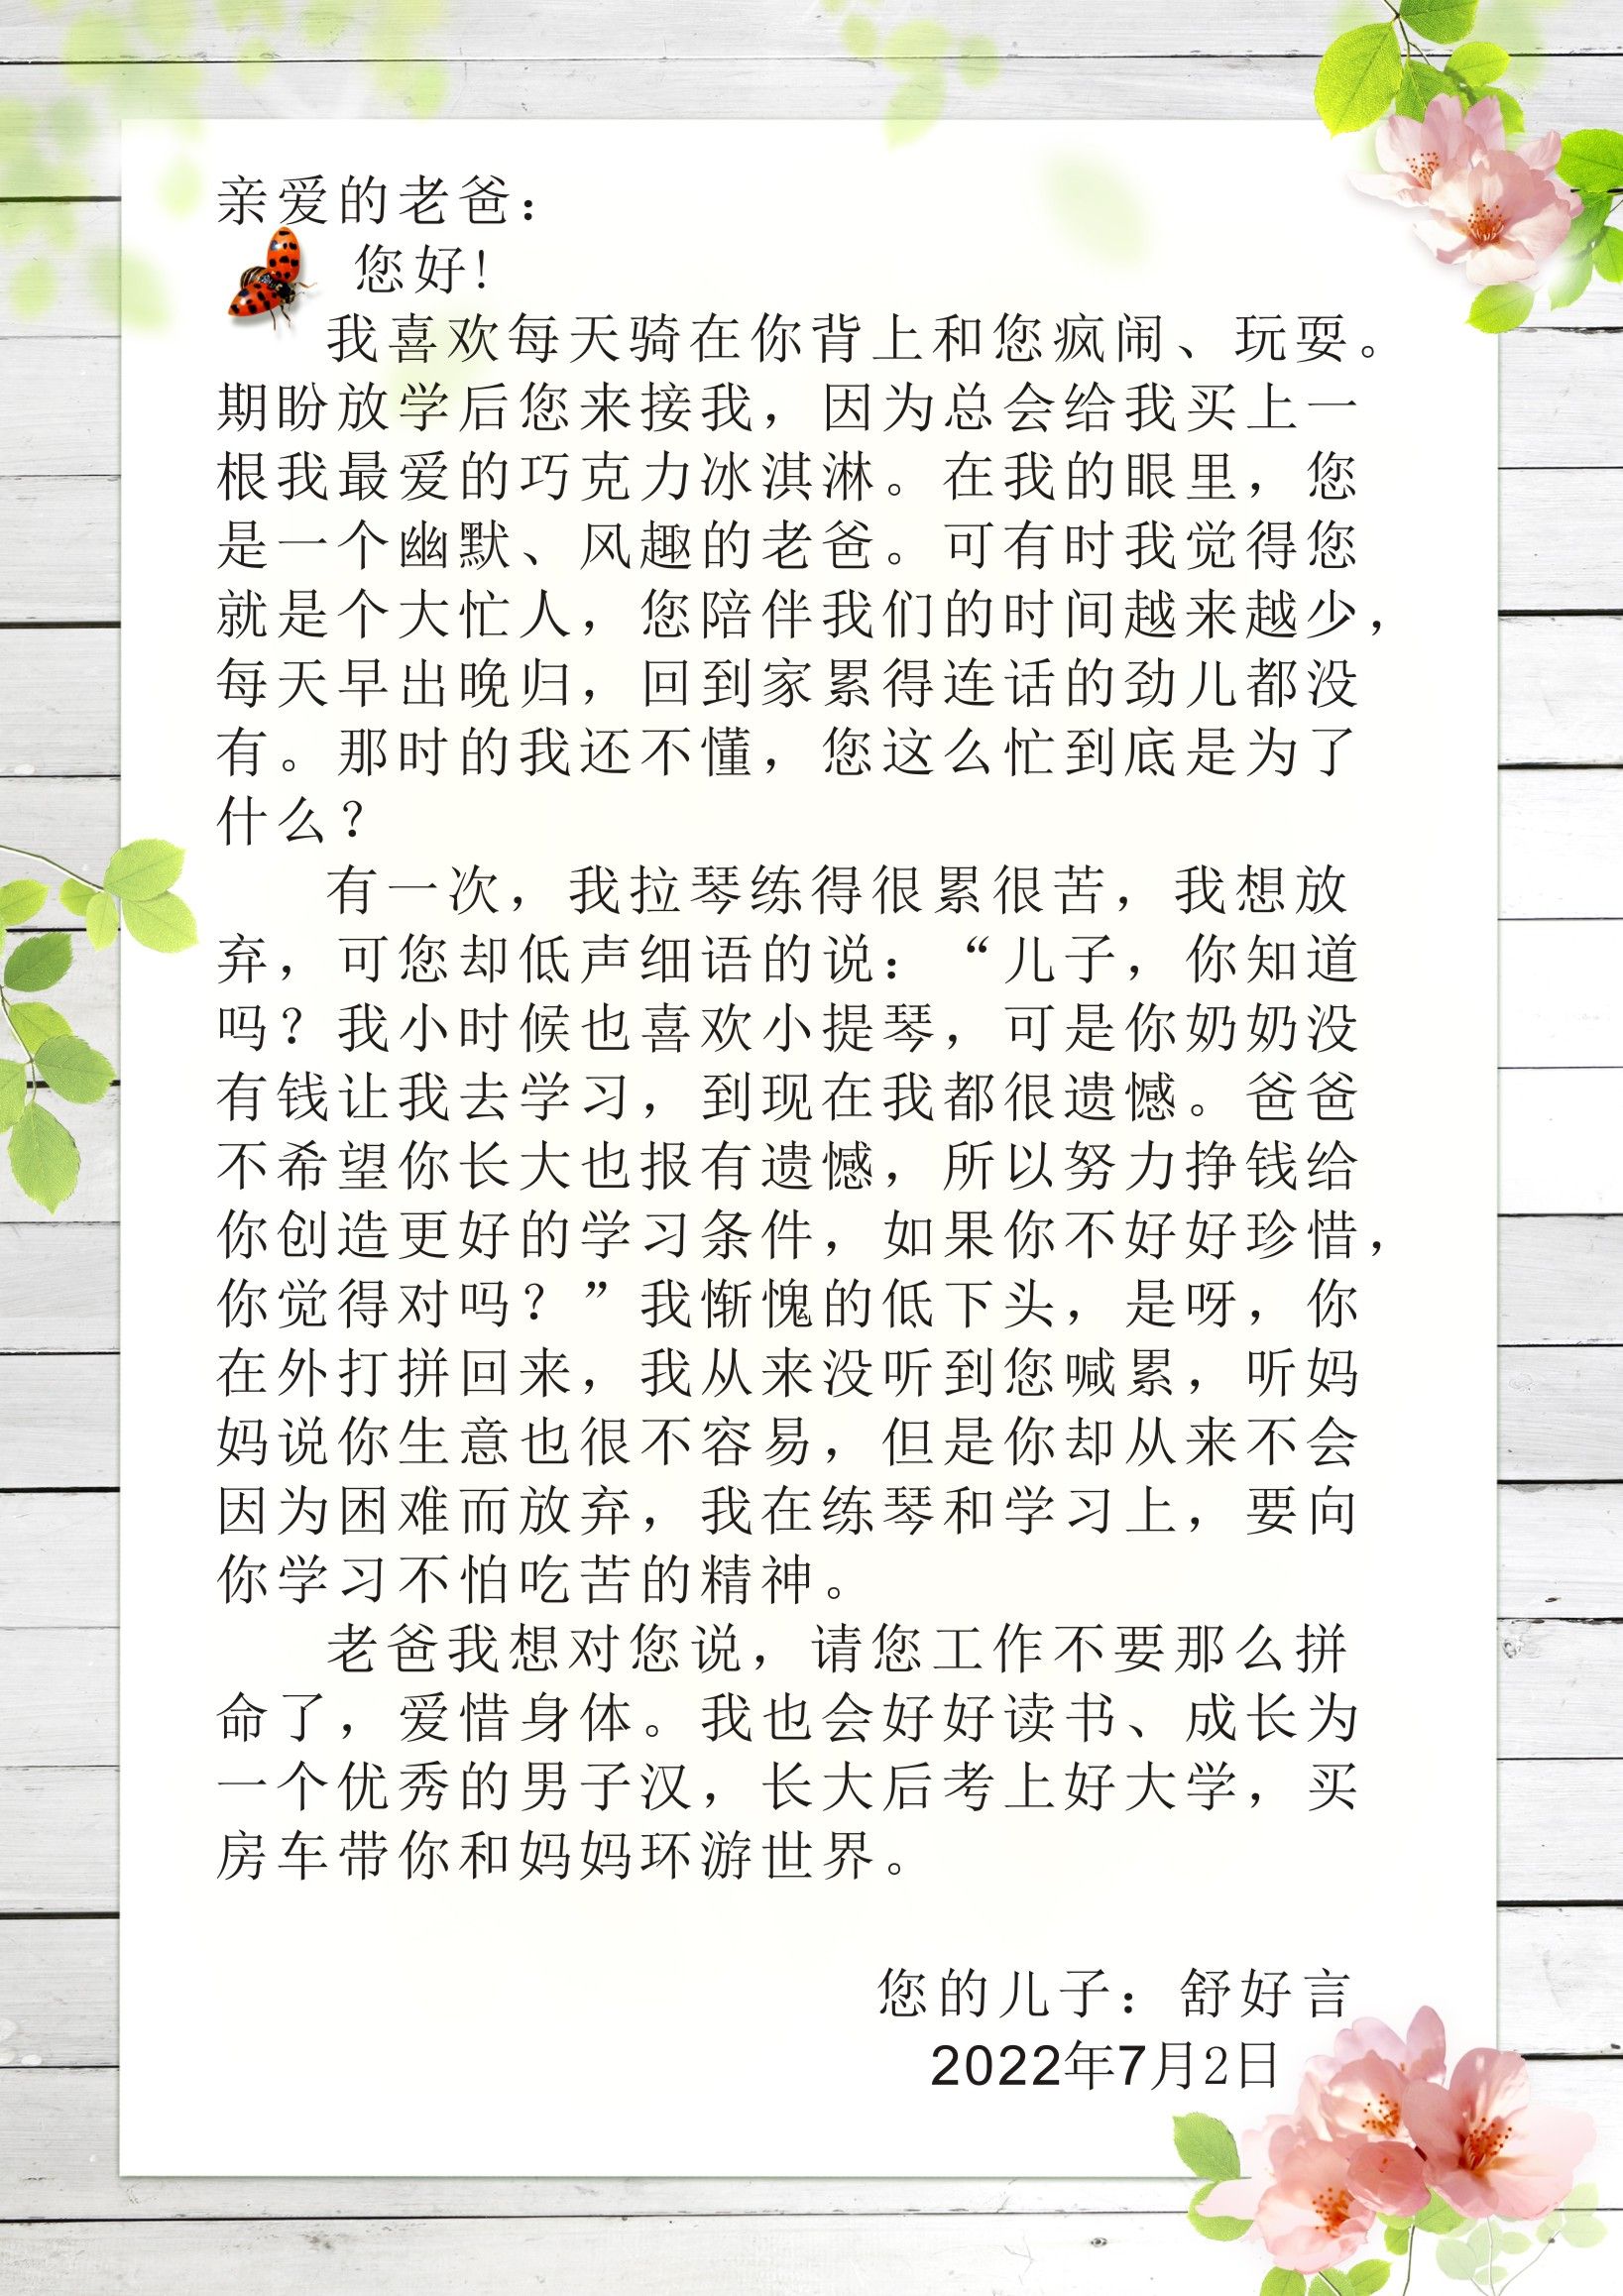 亲爱的老爸：
您好！
我喜欢每天骑在你背上和您疯闹、玩耍。
期盼放学后您来接我，因为总会给我买上一
根我最爱的巧克力冰淇淋。在我的眼里，您
是一个幽默、风趣的老爸。可有时我觉得您
就是个大忙人，您陪伴我们的时间越来越少，
每天早出晚归，回到家累得连话的劲儿都没
有。那时的我还不懂，您这么忙到底是为了
什么？
有一次，我拉琴练得很累很苦，我想放
弃，可您却低声细语的说：“儿子，你知道
吗？我小时候也喜欢小提琴，可是你奶奶没
有钱让我去学习，到现在我都很遗憾。爸爸
不希望你长大也报有遗憾，所以努力挣钱给
你创造更好的学习条件，如果你不好好珍惜，
你觉得对吗？”我惭愧的低下头，是呀，你
在外打拼回来，我从来没听到您喊累，听妈
妈说你生意也很不容易，但是你却从来不会
因为困难而放弃，我在练琴和学习上，要向
你学习不怕吃苦的精神。
老爸我想对您说，请您工作不要那么拼
命了，爱惜身体。我也会好好读书、成长为
一个优秀的男子汉，长大后考上好大学，买
房车带你和妈妈环游世界。
您的儿子：舒好言
2022年7月2日